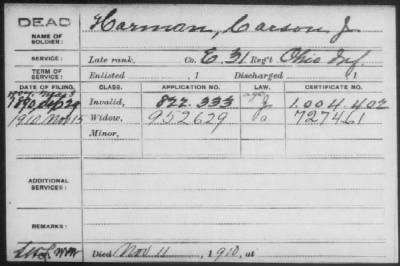 DEAD
NAME OF SOLDIER: Harman, Carson J
SERVICE: Late rank, Co. E. 31 Reg't Ohio Inf.
TERM OF SERVICE: Enlisted , 1 Discharged , 1
DATE OF FILING. CLASS. APPLICATION NO. LAW. CERTIFICATE NO.
1890 Invalid, 822.333 1.004.402
1910 Nov 15 Widow, 952629 a 727461
Minor,
ADDITIONAL SERVICES:
REMARKS:
Died Nov 11, 1910, at